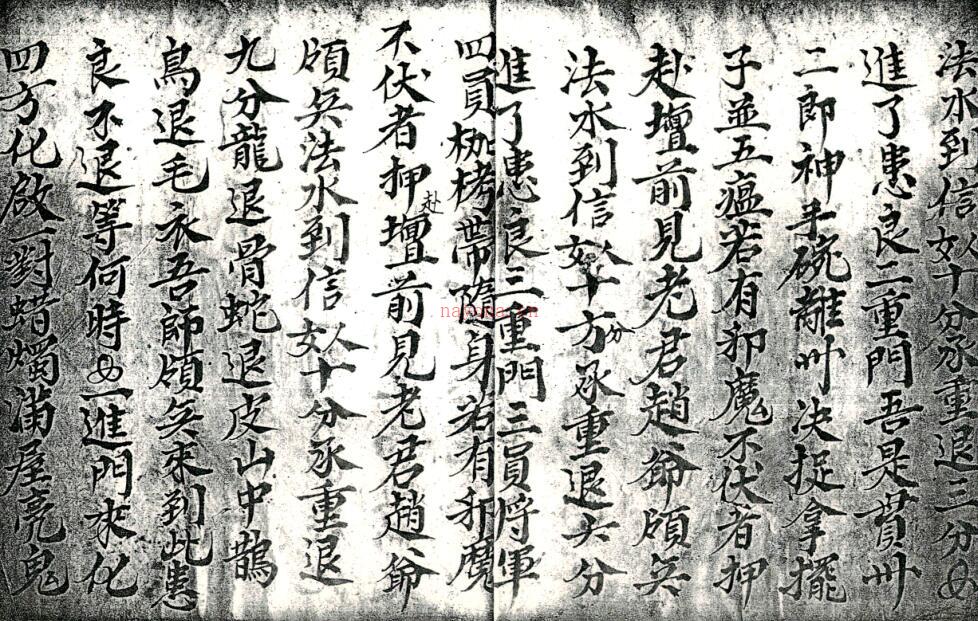 法水到信女人十分承重退三分
進了患良二重門吾是貫州
二郎神手碗離州決捉拿擺
子並五瘟若有邪魔不伏者押
赴壇前見老君趙爺領兵
法水到信女人十方分承重退六分
進了患良三重門三員将軍
四員枷栲帶隨身若有邪魔
不伏者押赴壇前見老君趙爺
領兵法水到信女人十分承重退
九分龍退骨蛇退皮山中鵲
鳥退毛衣吾師領兵來到此患
良不退等何時一進門來化
四方化啟一對蜡燭滿屋亮鬼